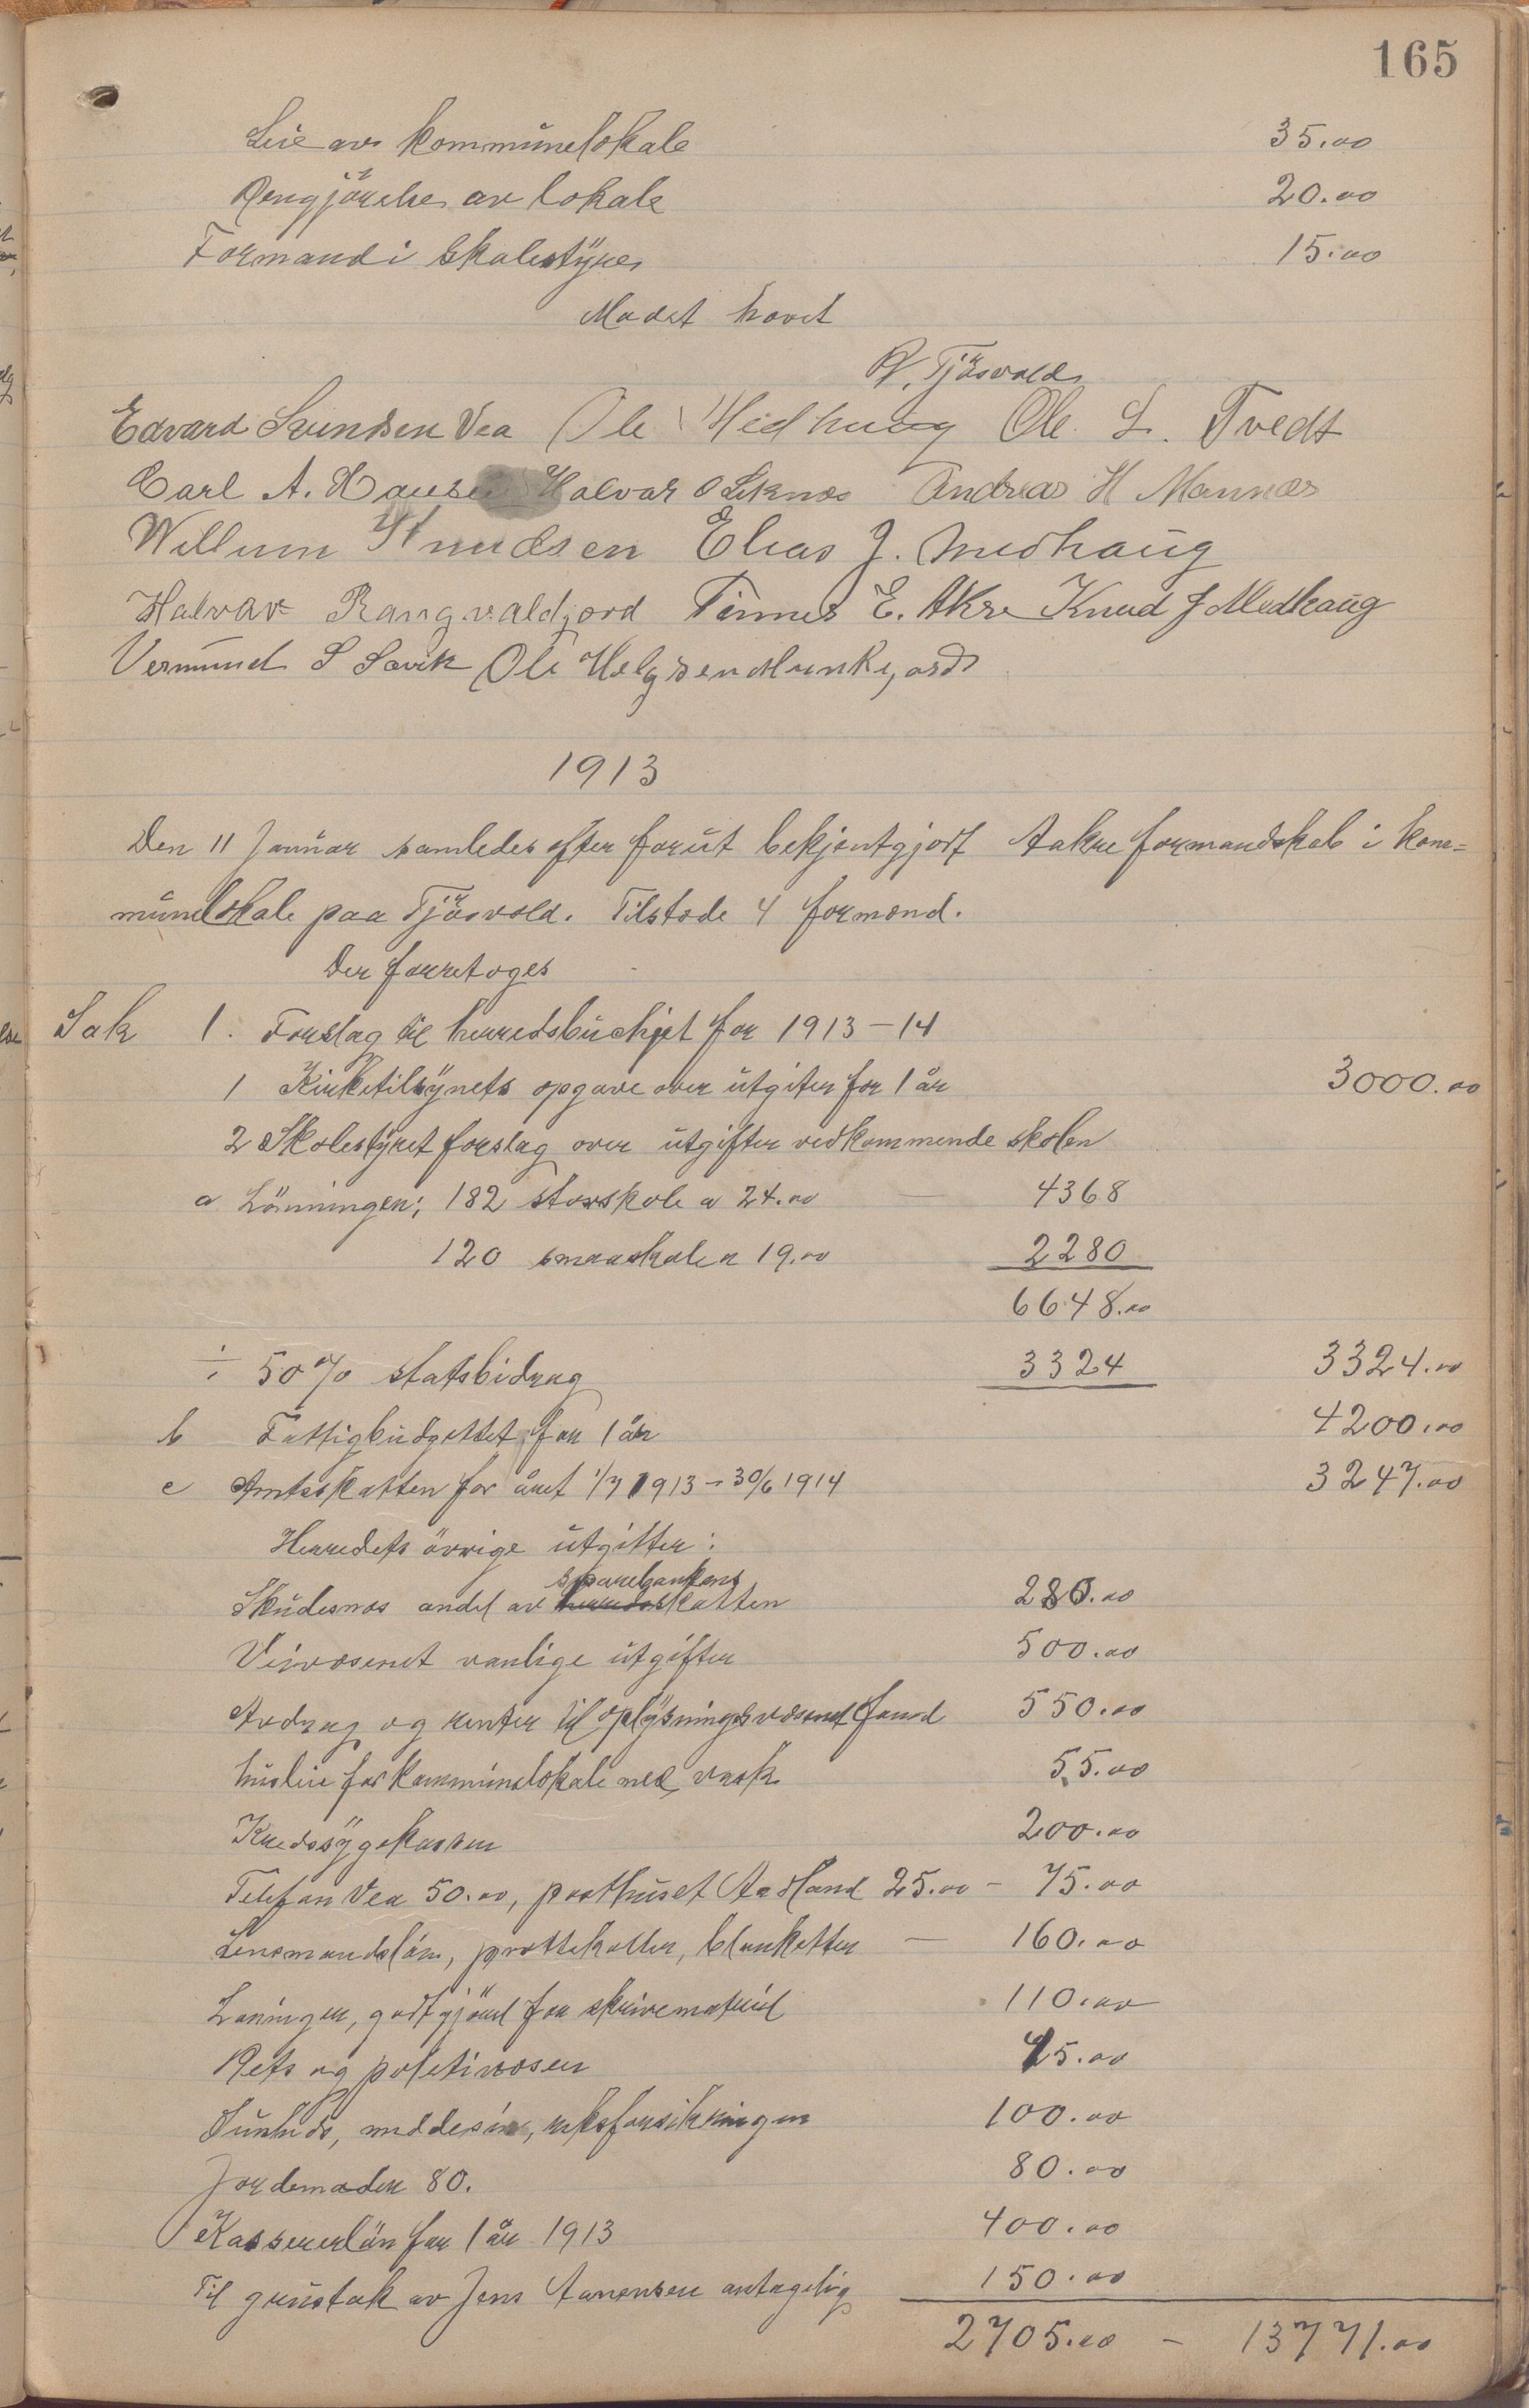 165
Leie av kommunelokale 35.00
Rengjörelse av lokale 20.00
Formand i skolestyre 15.00
Mödet hævet
Tjösvold
Edvard Svendsen Vea Ole Medhaug Ole L. Tvedt
Carl A. Hansen Halvar O Liknes Andreas H Mannes
Willum Knudsen Elias J. Medhaug
Halvar Rangvaldjord Tinnes E. Akre Knud J Medhaug
Vermund S Sævik Ole Helgesen Munkejord
1913
Den 11 Januar samledes efter forut bekjentgjort Aakre formandskab i kom=
munelokale paa Tjösvold. Tilstede 4 formænd.
Der foretoges
Sak 1. Forslag til herredsbudsjet for 1913-14
1 Kirketilsynets opgave over utgiter for 1 år 3000.00
2 Skolestyret forslag over utgifter vedkommende skolen
a Lönningen; 182 storskole a 24.00 — 4368
120 smaaskole a 19.00 2280
6648.00
÷ 50% statsbidrag 3324 3324.00
b Fattigbudgettet for 1 år 4200.00
c Amtsskatten for året 1/7 1913 - 30/6 1914 3247.00
Herredets övrige utgifter:
sparebankens
Skudesnes andel av herredsskatten 280.00
Veivæsenet vanlige utgifter 500.00
Avdrag og renter til oplysningsvæsenet fond 550.00
husleie for kommunelokale med vask 55.00
Kredssygekassen 200.00
Telefon Vea 50.00, posthuset Aadland 25.00 - 75.00
Lensmandslön, prottekoller, blanketter — 160.00
Löninger, godtgjörel for skrivemateriel 110.00
Rets og politivæsen 45.00
Sunheds, meddesin, riksforsikringen 100.00
Jordemoder 80. 80.00
Kassererlön for 1 år 1913 400.00
Til grustak av Jens Aanensen antagelig 150.00
2705.00 - 13771.00